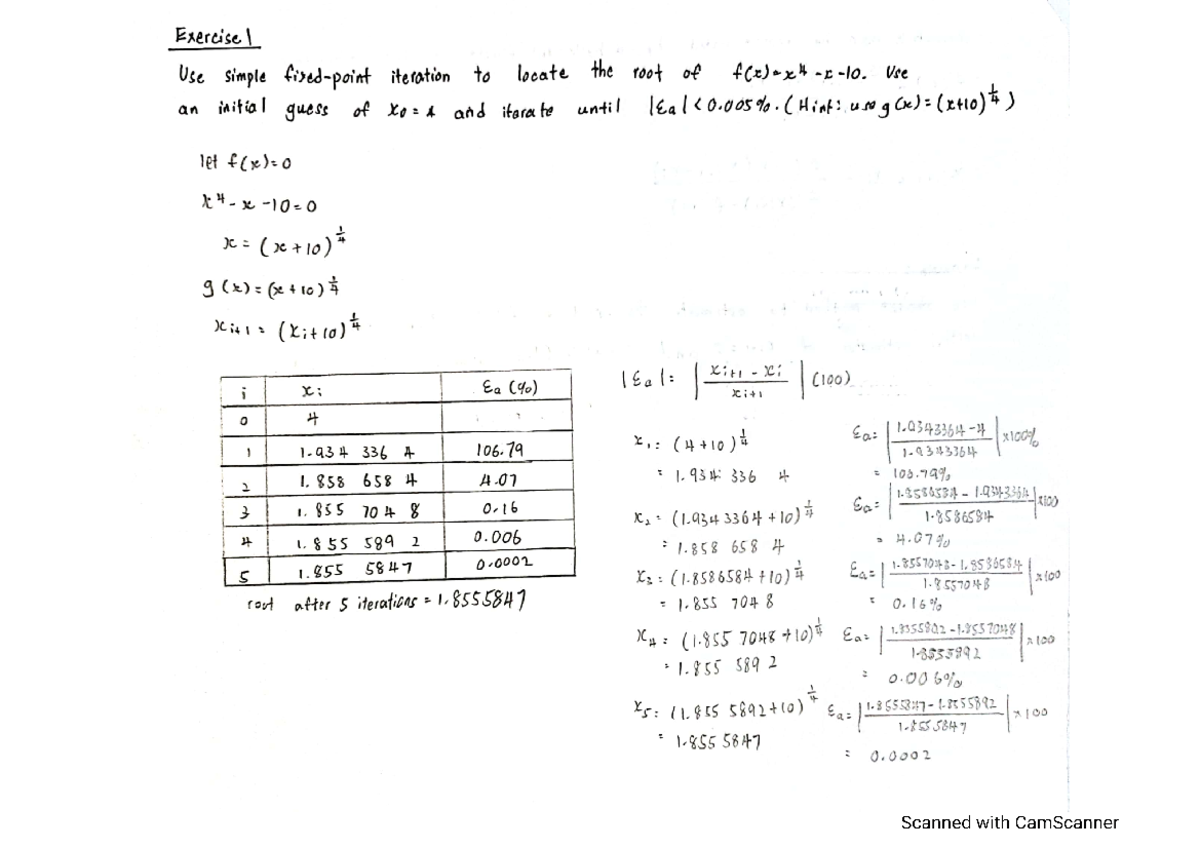 Exercise 1
Use simple fixed-point iteration to locate the root of f(x)=x⁴-x-10. Use
an initial guess of x₀=4 and iterate until |εa|<0.005%. (Hint: use g(x)=(x+10)^¼)
let f(x)=0
x⁴-x-10=0
x=(x+10)^¼
g(x)=(x+10)^¼
xᵢ₊₁=(xᵢ+10)^¼
i xᵢ εa (%)
0 4
1 1.934 336 4 106.79
2 1.858 658 4 4.07
3 1.855 704 8 0.16
4 1.855 589 2 0.006
5 1.855 5847 0.0002
root after 5 iterations = 1.8555847
|εa|= |(xᵢ₊₁ - xᵢ)/xᵢ₊₁| (100)
x₁= (4+10)^¼ εa= |(1.9343364-4)/1.9343364| x100%
= 1.934 336 4 = 106.79%
x₂= (1.9343364+10)^¼ εa= |(1.8586584-1.9343364)/1.8586584| x100
= 1.858 658 4 = 4.07%
x₃= (1.8586584+10)^¼ εa= |(1.8557048-1.8586584)/1.8557048| x100
= 1.855 704 8 = 0.16%
x₄= (1.855 7048+10)^¼ εa= |(1.8555892-1.8557048)/1.8555892| x100
= 1.855 589 2 = 0.006%
x₅= (1.855 5892+10)^¼ εa= |(1.8555847-1.8555892)/1.8555847| x100
= 1.855 5847 = 0.0002
Scanned with CamScanner